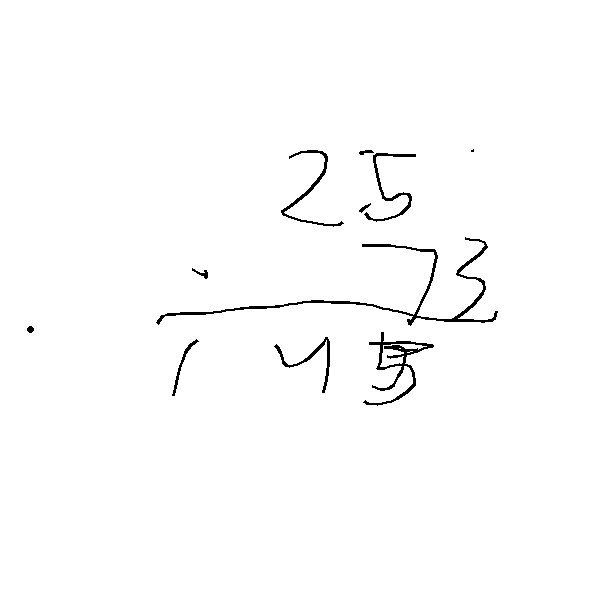 25
73
145